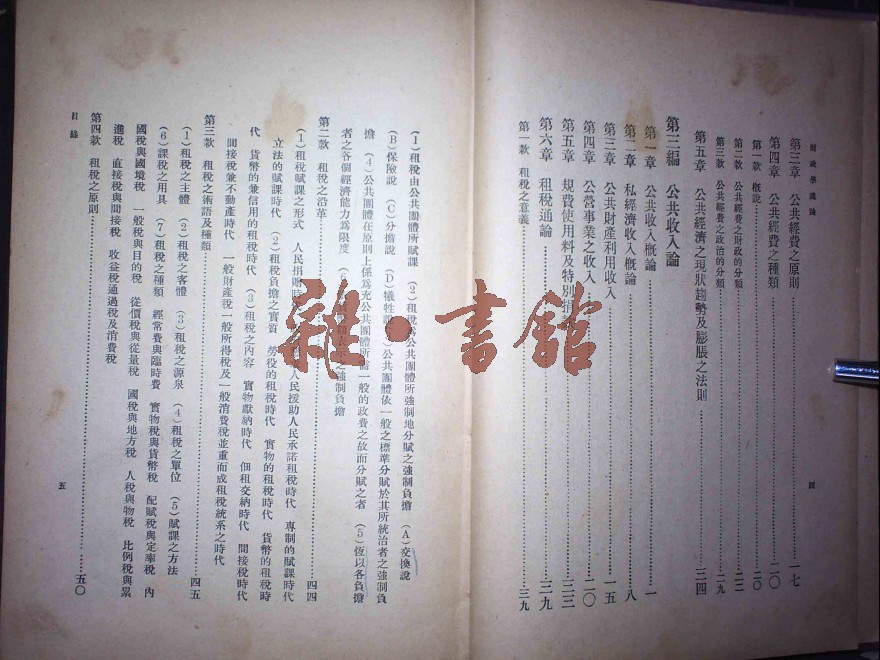 財政學通論
第三章 公共經費之原則 一七
第四章 公共經費之種類 二〇
第一款 概說 二〇
第二款 公共經費之財政的分類 二二
第三款 公共經費之政治的分類
第五章 公共經濟之現狀趨勢及膨脹之法則 二四
第三編 公共收入論
第一章 公共收入概論 一
第二章 私經濟收入概論 八
第三章 公共財產利用收入 一五
第四章 公營事業之收入 二〇
第五章 規費使用料及特別捐 二三
第六章 租稅通論 二九
第一款 租稅之意義 三九
四
(1)租稅由公共團體所賦課 (2)租稅為公共團體所強制地分賦之強制負擔 (A)交換說
(B)保險說 (C)分擔說 (D)犧牲 公共團體依一般之標準分賦於其所統治者之強制負
擔 (4)公共團體在原則上係為充公共團體所需一般的政費之故而分賦之者 (5)恆以各負擔
者之各個經濟能力為限度 之強制負擔
第二款 租稅之沿革 四四
(1)租稅賦課之形式 人民捐贈時 人民援助人民承諾租稅時代 專制的賦課時代
立法的賦課時代 (2)租稅負擔之實質 勞役的租稅時代 實物的租稅時代 貨幣的租稅時
代 貨幣的兼信用的租稅時代 (3)租稅之內容 實物獻納時代 佃租交納時代 間接稅時代
間接稅兼不動產時代 一般財產稅一般所得稅及一般消費稅並重而成租稅統系之時代
第三款 租稅之術語及種類 四五
(1)租稅之主體 (2)租稅之客體 (3)租稅之源泉 (4)租稅之單位 (5)賦課之方法
(6)課稅之用具 (7)租稅之種類 經常費與臨時費 實物稅與貨幣稅 配賦稅與定率稅 內
國稅與國境稅 一般稅與目的稅 從價稅與從量稅 國稅與地方稅 人稅與物稅 比例稅與累
進稅 直接稅與間接稅 收益稅通過稅及消費稅
第四款 租稅之原則 五〇
目錄
五
雜·書館